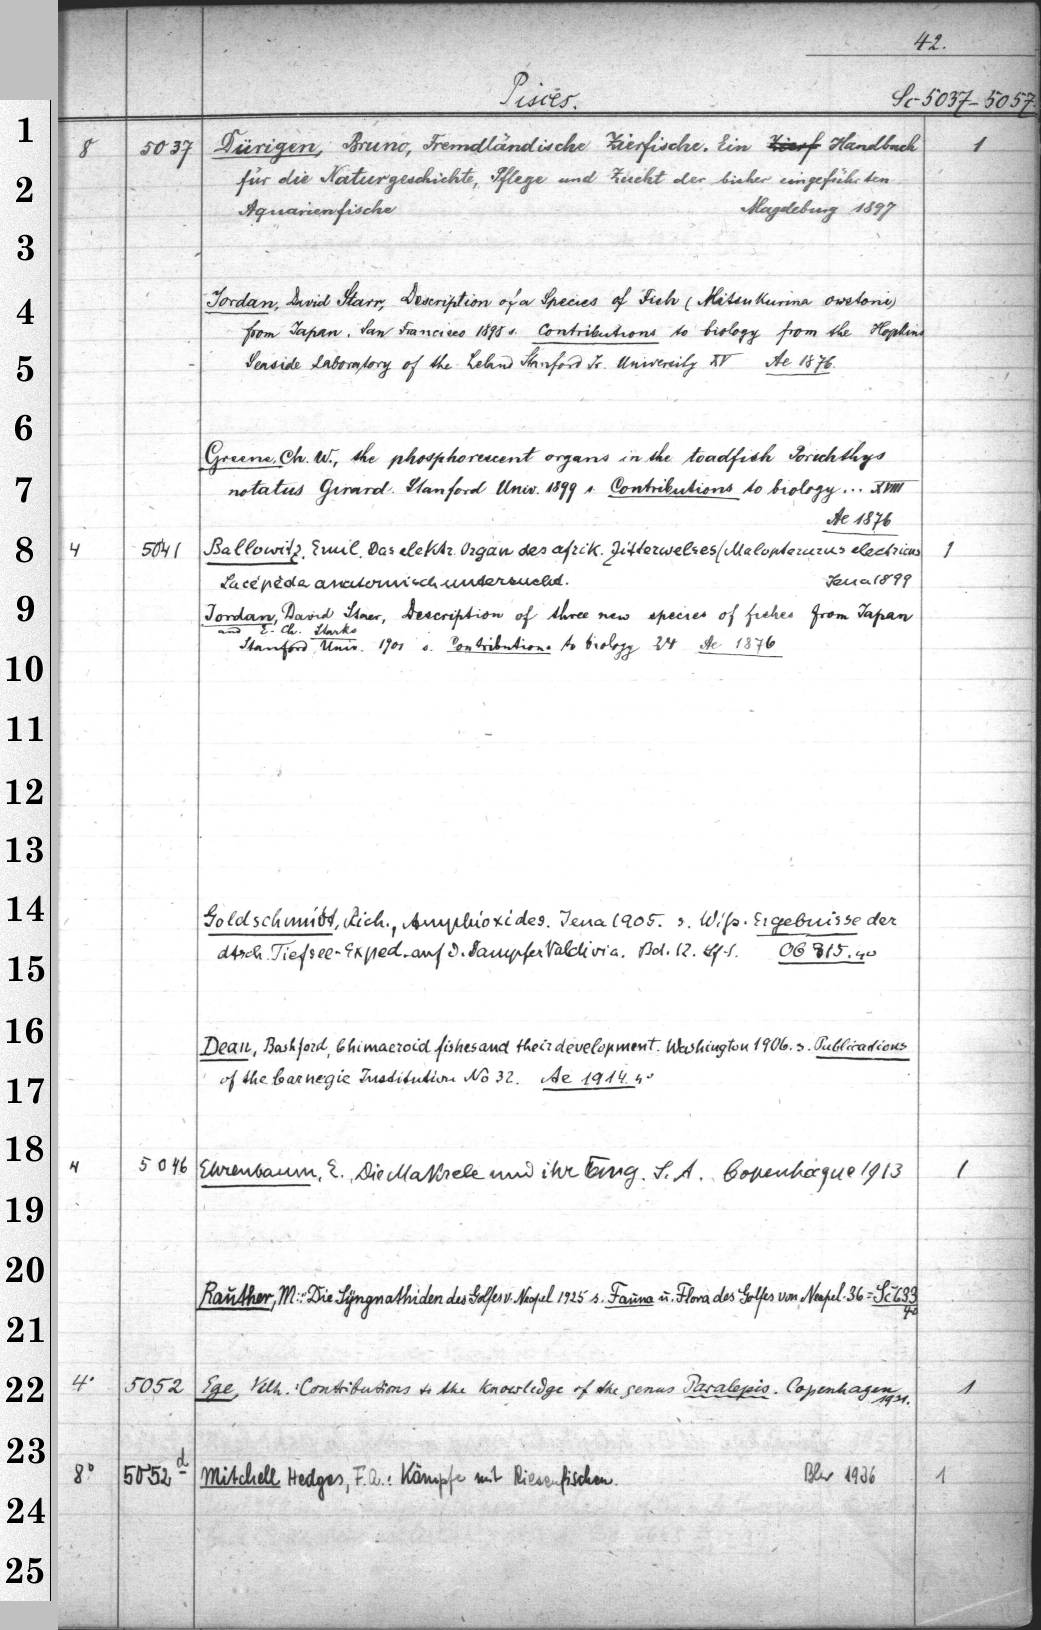 42.
Pisces.
Sc-5037-5057.
1
8 5037 Dürigen, Bruno, Fremdländische Zierfische. Ein Zierf Handbuch 1
2
für die Naturgeschichte, Pflege und Zucht der bisher eingeführten
Aquarienfische Magdeburg 1897
3
4
Jordan, David Starr, Description of a Species of Fish (Mitsukurina owstoni)
from Japan. San Francisco 1898 s. Contributions to biology from the Hopkins
5
Seaside Laboratory of the Leland Stanford Jr. University XV Ae 1876.
6
Greene, Ch. W., the phosphorescent organs in the toadfish Porichthys
7
notatus Girard. Stanford Univ. 1899 s. Contributions to biology... XVIII
Ae 1876
8
4 5041 Ballowitz, Emil, Das elektr. Organ des afrik. Zitterwelses (Malopterurus electricus 1
Lacépède anatomisch untersucht. Jena 1899
9
Jordan, David Starr, Description of three new species of fishes from Japan
and E. Ch. Starks
Stanford Univ. 1901 s. Contributions to biology 24 Ae 1876
10
11
12
13
14
Goldschmidt, Rich., Amphioxides. Jena 1905. s. Wiss. Ergebnisse der
15
dtsch. Tiefsee-Exped. auf d. Dampfer Valdivia. Bd. 12. Lf. 1. OG 815. 4o
16
Dean, Bashford, Chimaeroid fishes and their development. Washington 1906. s. Publications
17
of the Carnegie Institution No 32. Ae 1914 4o
18
4 5046 Ehrenbaum, E., Die Makrele und ihr Fang. S. A. Copenhague 1913 1
19
20
Rauther, M.: Die Syngnathiden des Golfes v. Neapel 1925 s. Fauna u. Flora des Golfes von Neapel. 36 = Sc 633
4o
21
22
4° 5052 Ege, Vilh.: Contributions to the knowledge of the genus Paralepis. Copenhagen 1
1931.
23
8° 5052 d Mitchell Hedges, F. A.: Kämpfe mit Riesenfischen. Bln 1936 1
24
25